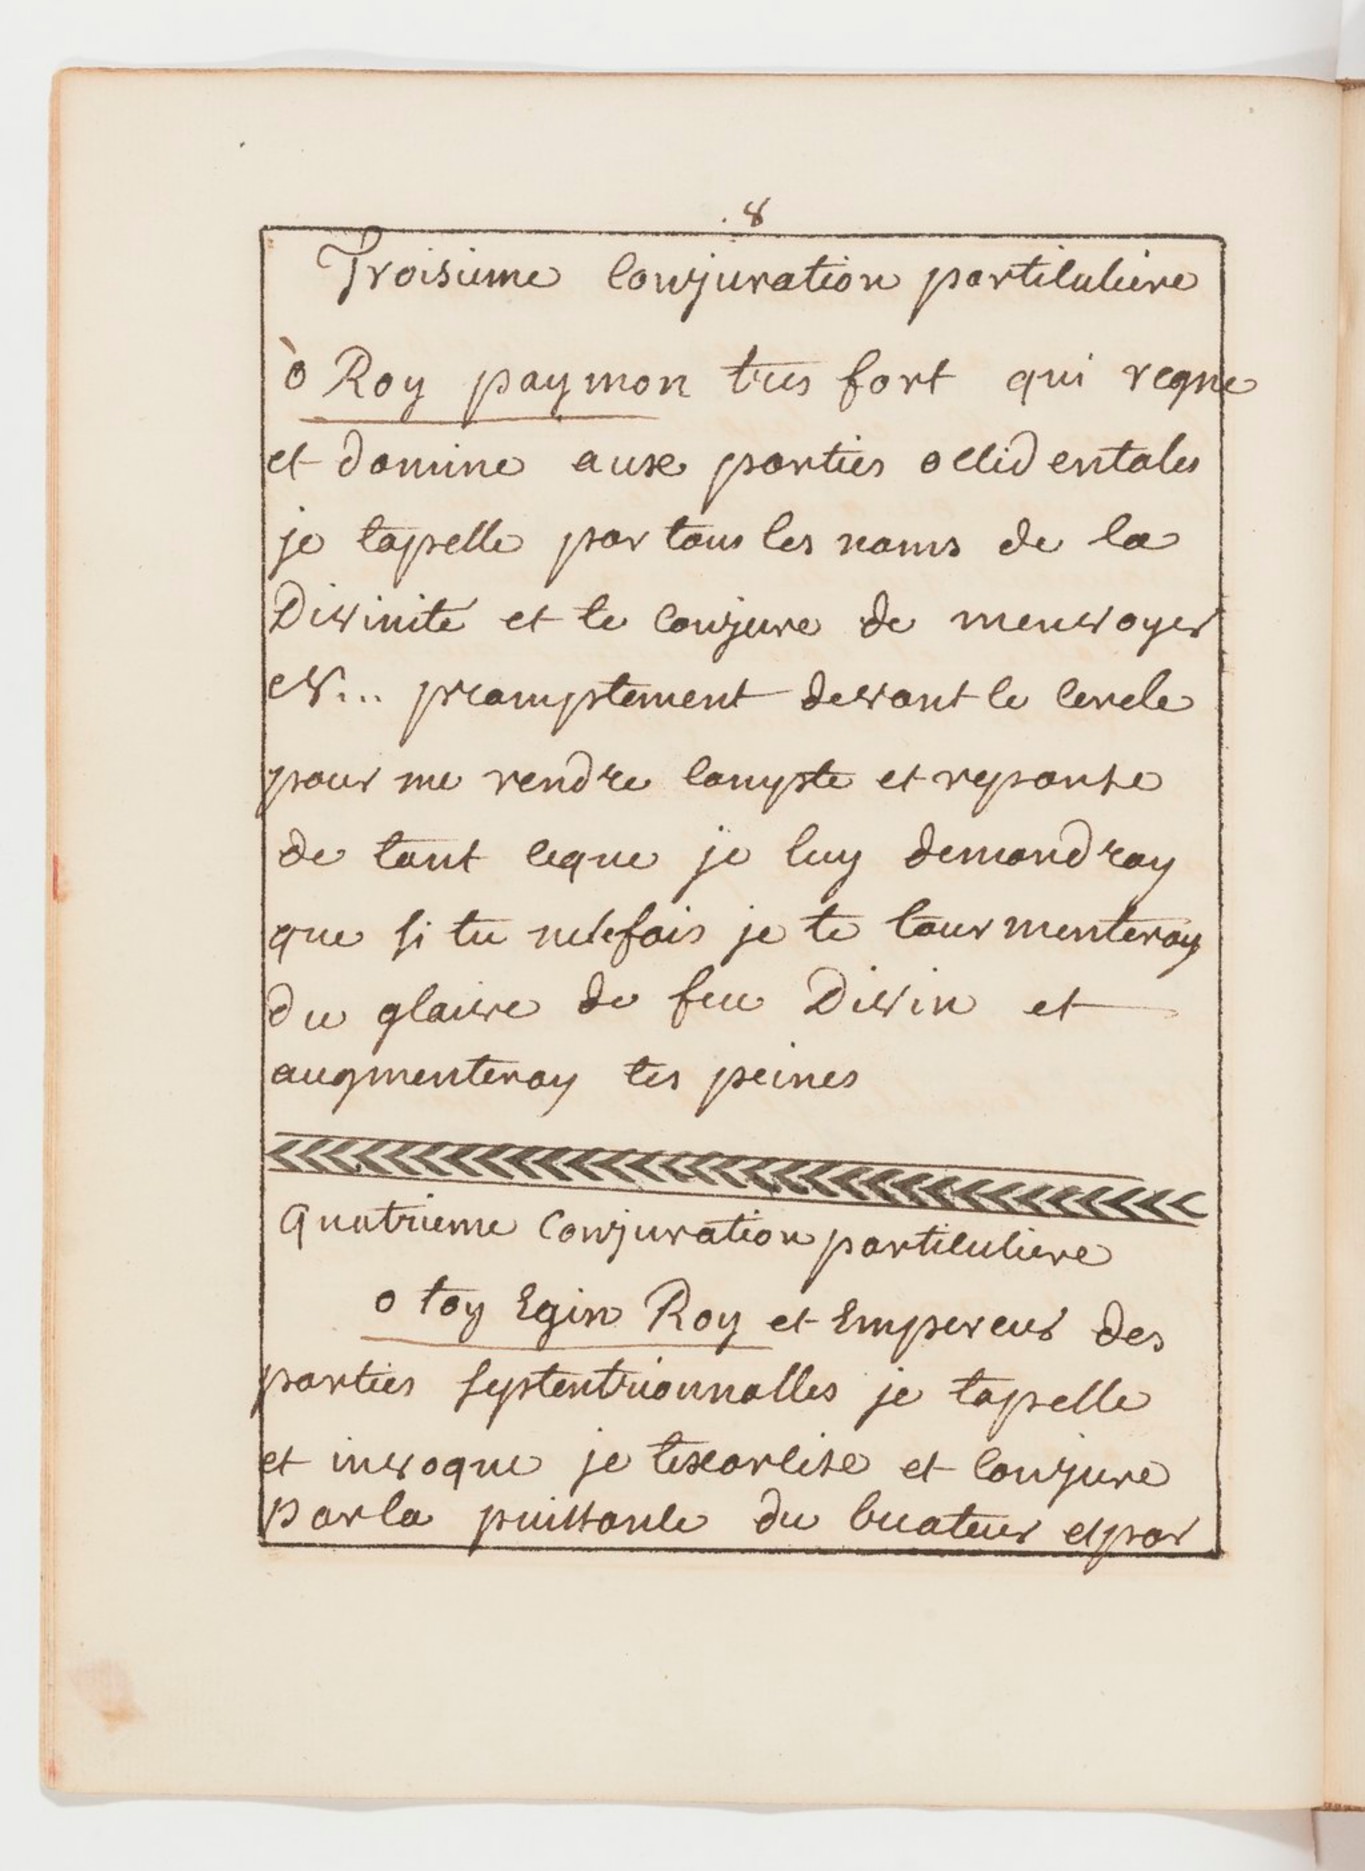 8
Troisieme Conjuration particuliere
ò Roy paymon tres fort qui regne
et domine aux parties occidentales
je tapelle par tous les noms de la
Divinité et te conjure de menvoyer
N... promptement devant le cercle
pour me rendre compte et reponse
de tout ceque je luy demandray
que si tu nelefais je te tourmenteray
du glaive de feu Divin et
augmenteray tes peines
Quatrieme Conjuration particuliere
o toy Egin Roy et Empereur des
parties septentrionnalles je tapelle
et invoque je texorcise et conjure
par la puissance du Créateur et par